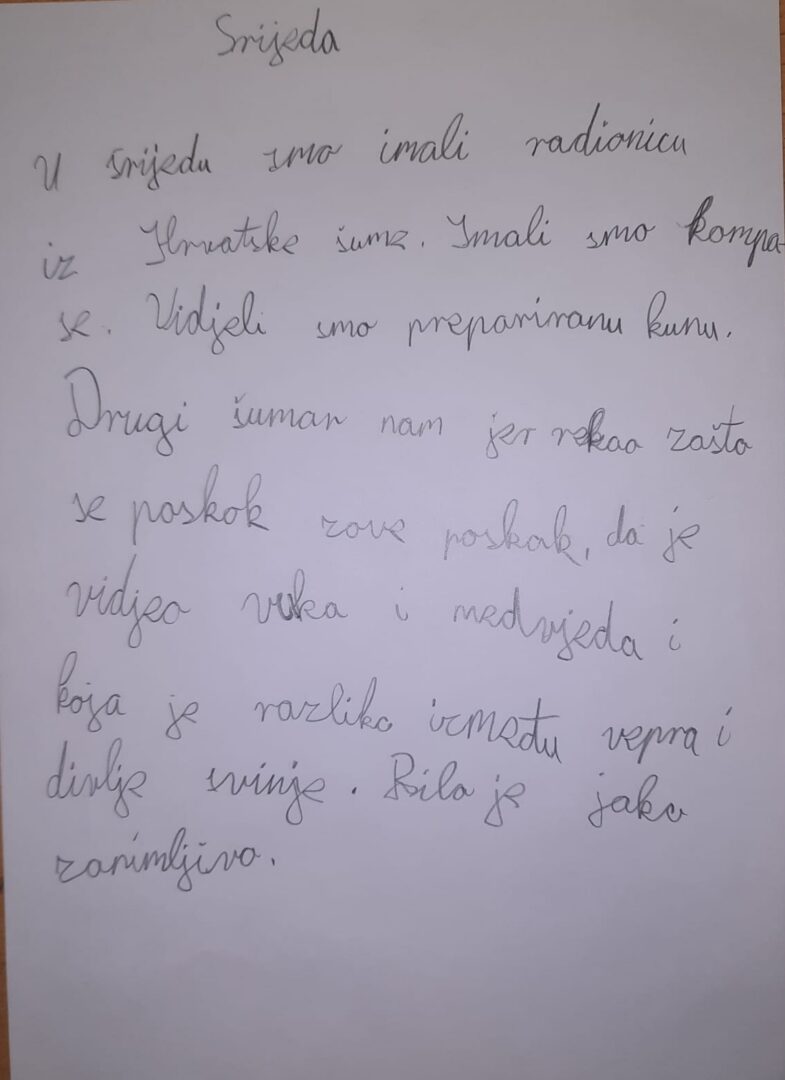 Srijeda
U srijedu smo imali radionicu
iz Hrvatske šume. Imali smo kompa-
se. Vidjeli smo prepariranu kunu.
Drugi šumar nam jer rekao zašto
se poskok zove poskok, da je
vidjeo vuka i medvjeda i
koja je razlika između vepra i
divlje svinje. Bilo je jako
zanimljivo.